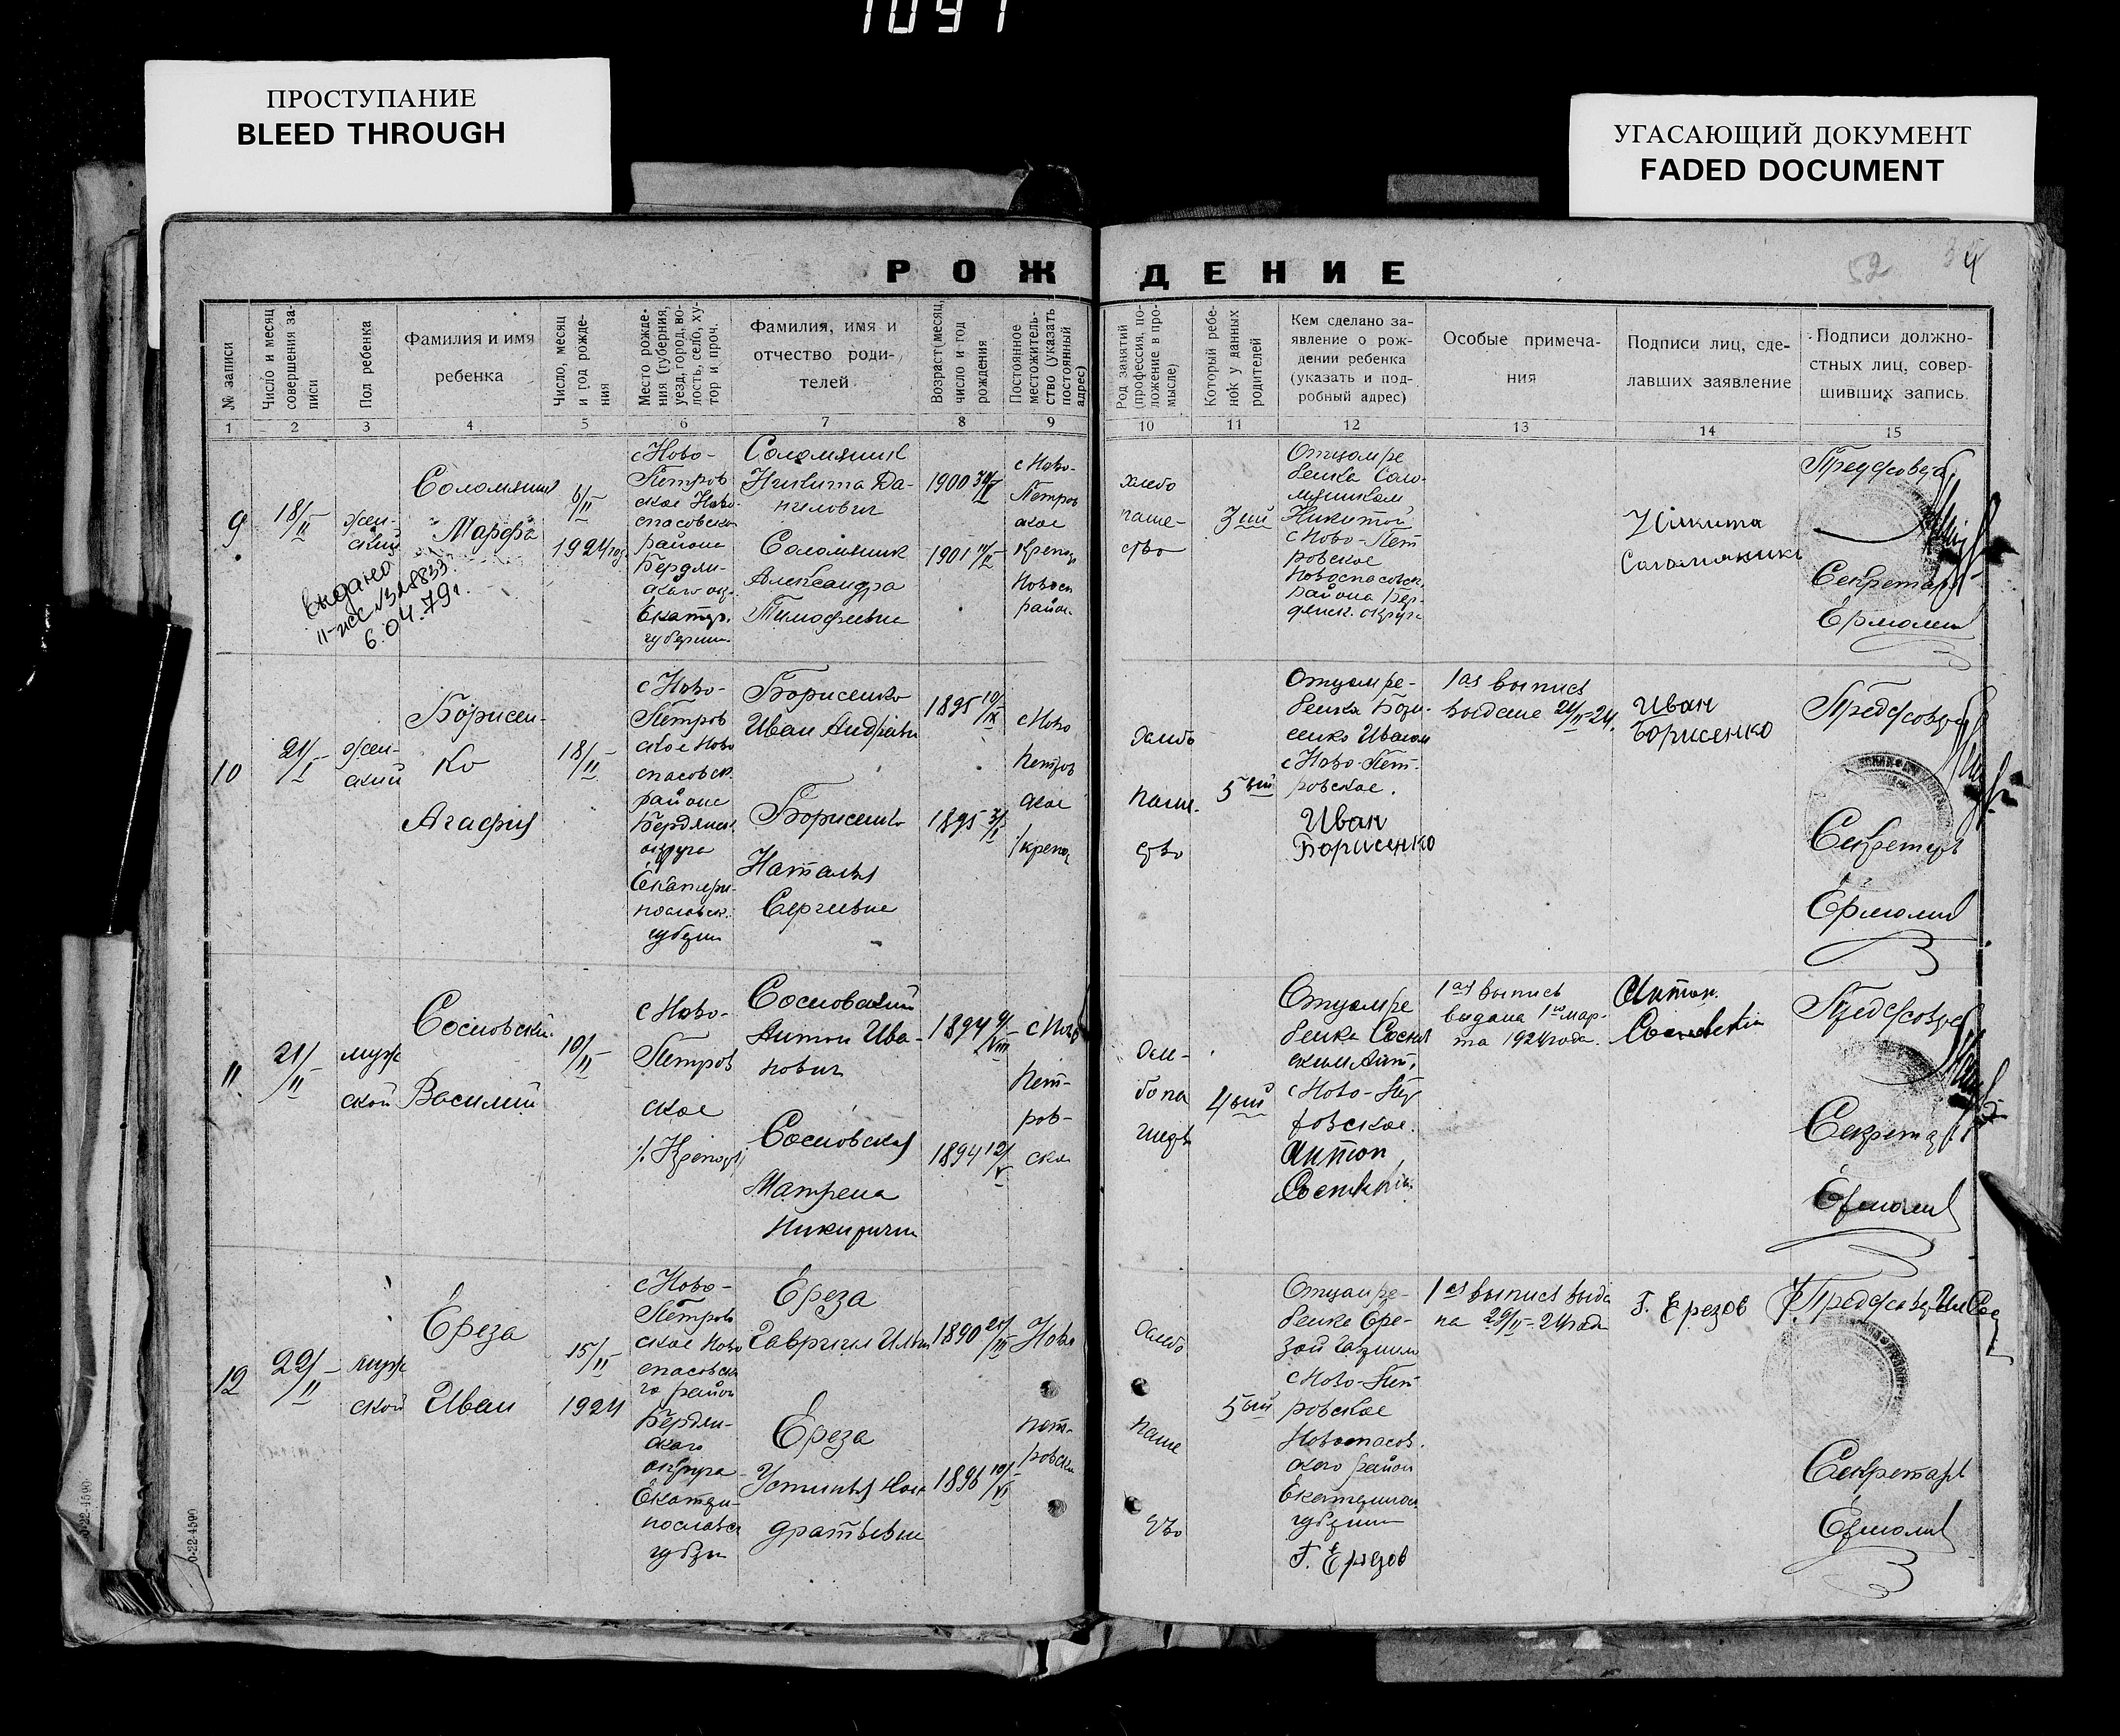 1097
ПРОСТУПАНИЕ
BLEED THROUGH
УГАСАЮЩИЙ ДОКУМЕНТ
FADED DOCUMENT
52
РОЖДЕНИЕ
№ записи
Число и месяц
совершения за-
писи
Пол ребенка
Фамилия и имя
ребенка
Число, месяц
и год рожде-
ния
Место рожде-
ния (губерния,
уезд, город, во-
лость, село, ху-
тор и проч.
Фамилия, имя и
отчество роди-
телей
Возраст (месяц,
число и год
рождения
Постоянное
местожитель-
ство (указать
постоянный
адрес)
Род занятий
(профессия, по-
ложение в про-
мысле)
Который ребе-
нок у данных
родителей
Кем сделано за-
явление о рож-
дении ребенка
(указать и под-
робный адрес)
Особые примеча-
ния
Подписи лиц, сде-
лавших заявление
Подписи должно-
стных лиц, совер-
шивших запись
1 2 3 4 5 6 7 8 9 10 11 12 13 14 15
9
18/II
жен-
ский
Соломяник
Марфа
6/II
1924 год
выдано
II-ЖС №328833
6.04.79г.
с Ново-
Петров
ское Ново-
спасовско
района
Бердян-
ского ок.
Екатер.
губернии
Соломяник
Никита Да-
нилович
Соломяник
Александра
Тимофеевна
1900
1901
с Ново-
Петров
ское
Новосп
район
хлебо
паше-
ство
3ий
Отцом ре
бенка Соло-
мяником
Никитой
с Ново-Пет
ровское
Новоспасовск.
района Бер-
дянск. округа
Никита
Соломяник
Предсовета
Секретарь
Ермолин
10
21/I
жен-
ский
Борисен-
ко
Агафия
18/II
с Ново-
Петров
ское Ново
спасовск.
района
Бердянск.
округа
Екатери-
нославск.
губерн
Борисенко
Иван Андреев
Борисенко
Наталья
Сергеевна
1895 10/IX
1895
с Ново
Петров
ское
хлебо
паш.
ство
5ый
Отцом ре-
бенка Бори-
сенко Иваном
с Ново-Пет-
ровское.
Иван
Борисенко
1ая выпись
выдана 21/II-24.
Иван
Борисенко
Предсовета
Секретарь
Ермолин
11
21/II
муж
ской
Сосновский
Василий
10/II
с Ново-
Петров
ское
Сосновский
Антон Ива-
нович
Сосновская
Матрена
Никифоровн
1894
1894 12/V
с Ново
Пет-
ров-
ско
4ый
Отцом ре
бенка Сосно
ским Ант.
с Ново-Пет
ровское.
Антон
1ая выпись
выдана 1го мар-
та 1924 года.
Антон
Предсовета
Секретарь
Ермолин
12
22/II
муж
ской
Ереза
Иван
15/II
1924
с Ново-
Петров
ское Ново
спасовско
го район
Бердян-
ского
округа
Екатери-
нославск
губерн
Ереза
Гавриил Ильич
Ереза
Устинья Кон-
дратьевна
1890
1896
Ново
Пет-
ровско
хлебо
паше
ство
5ый
Отцом ре-
бенка Ере-
зой Гавриило
с Ново-Пет
ровское
Новоспасов.
ского район
Екатеринос
губернии
Г. Ерезов
1ая выпись выда
на 29/II-24 года
Г. Ерезов
Секретарь
Ермолин
0-22-4590